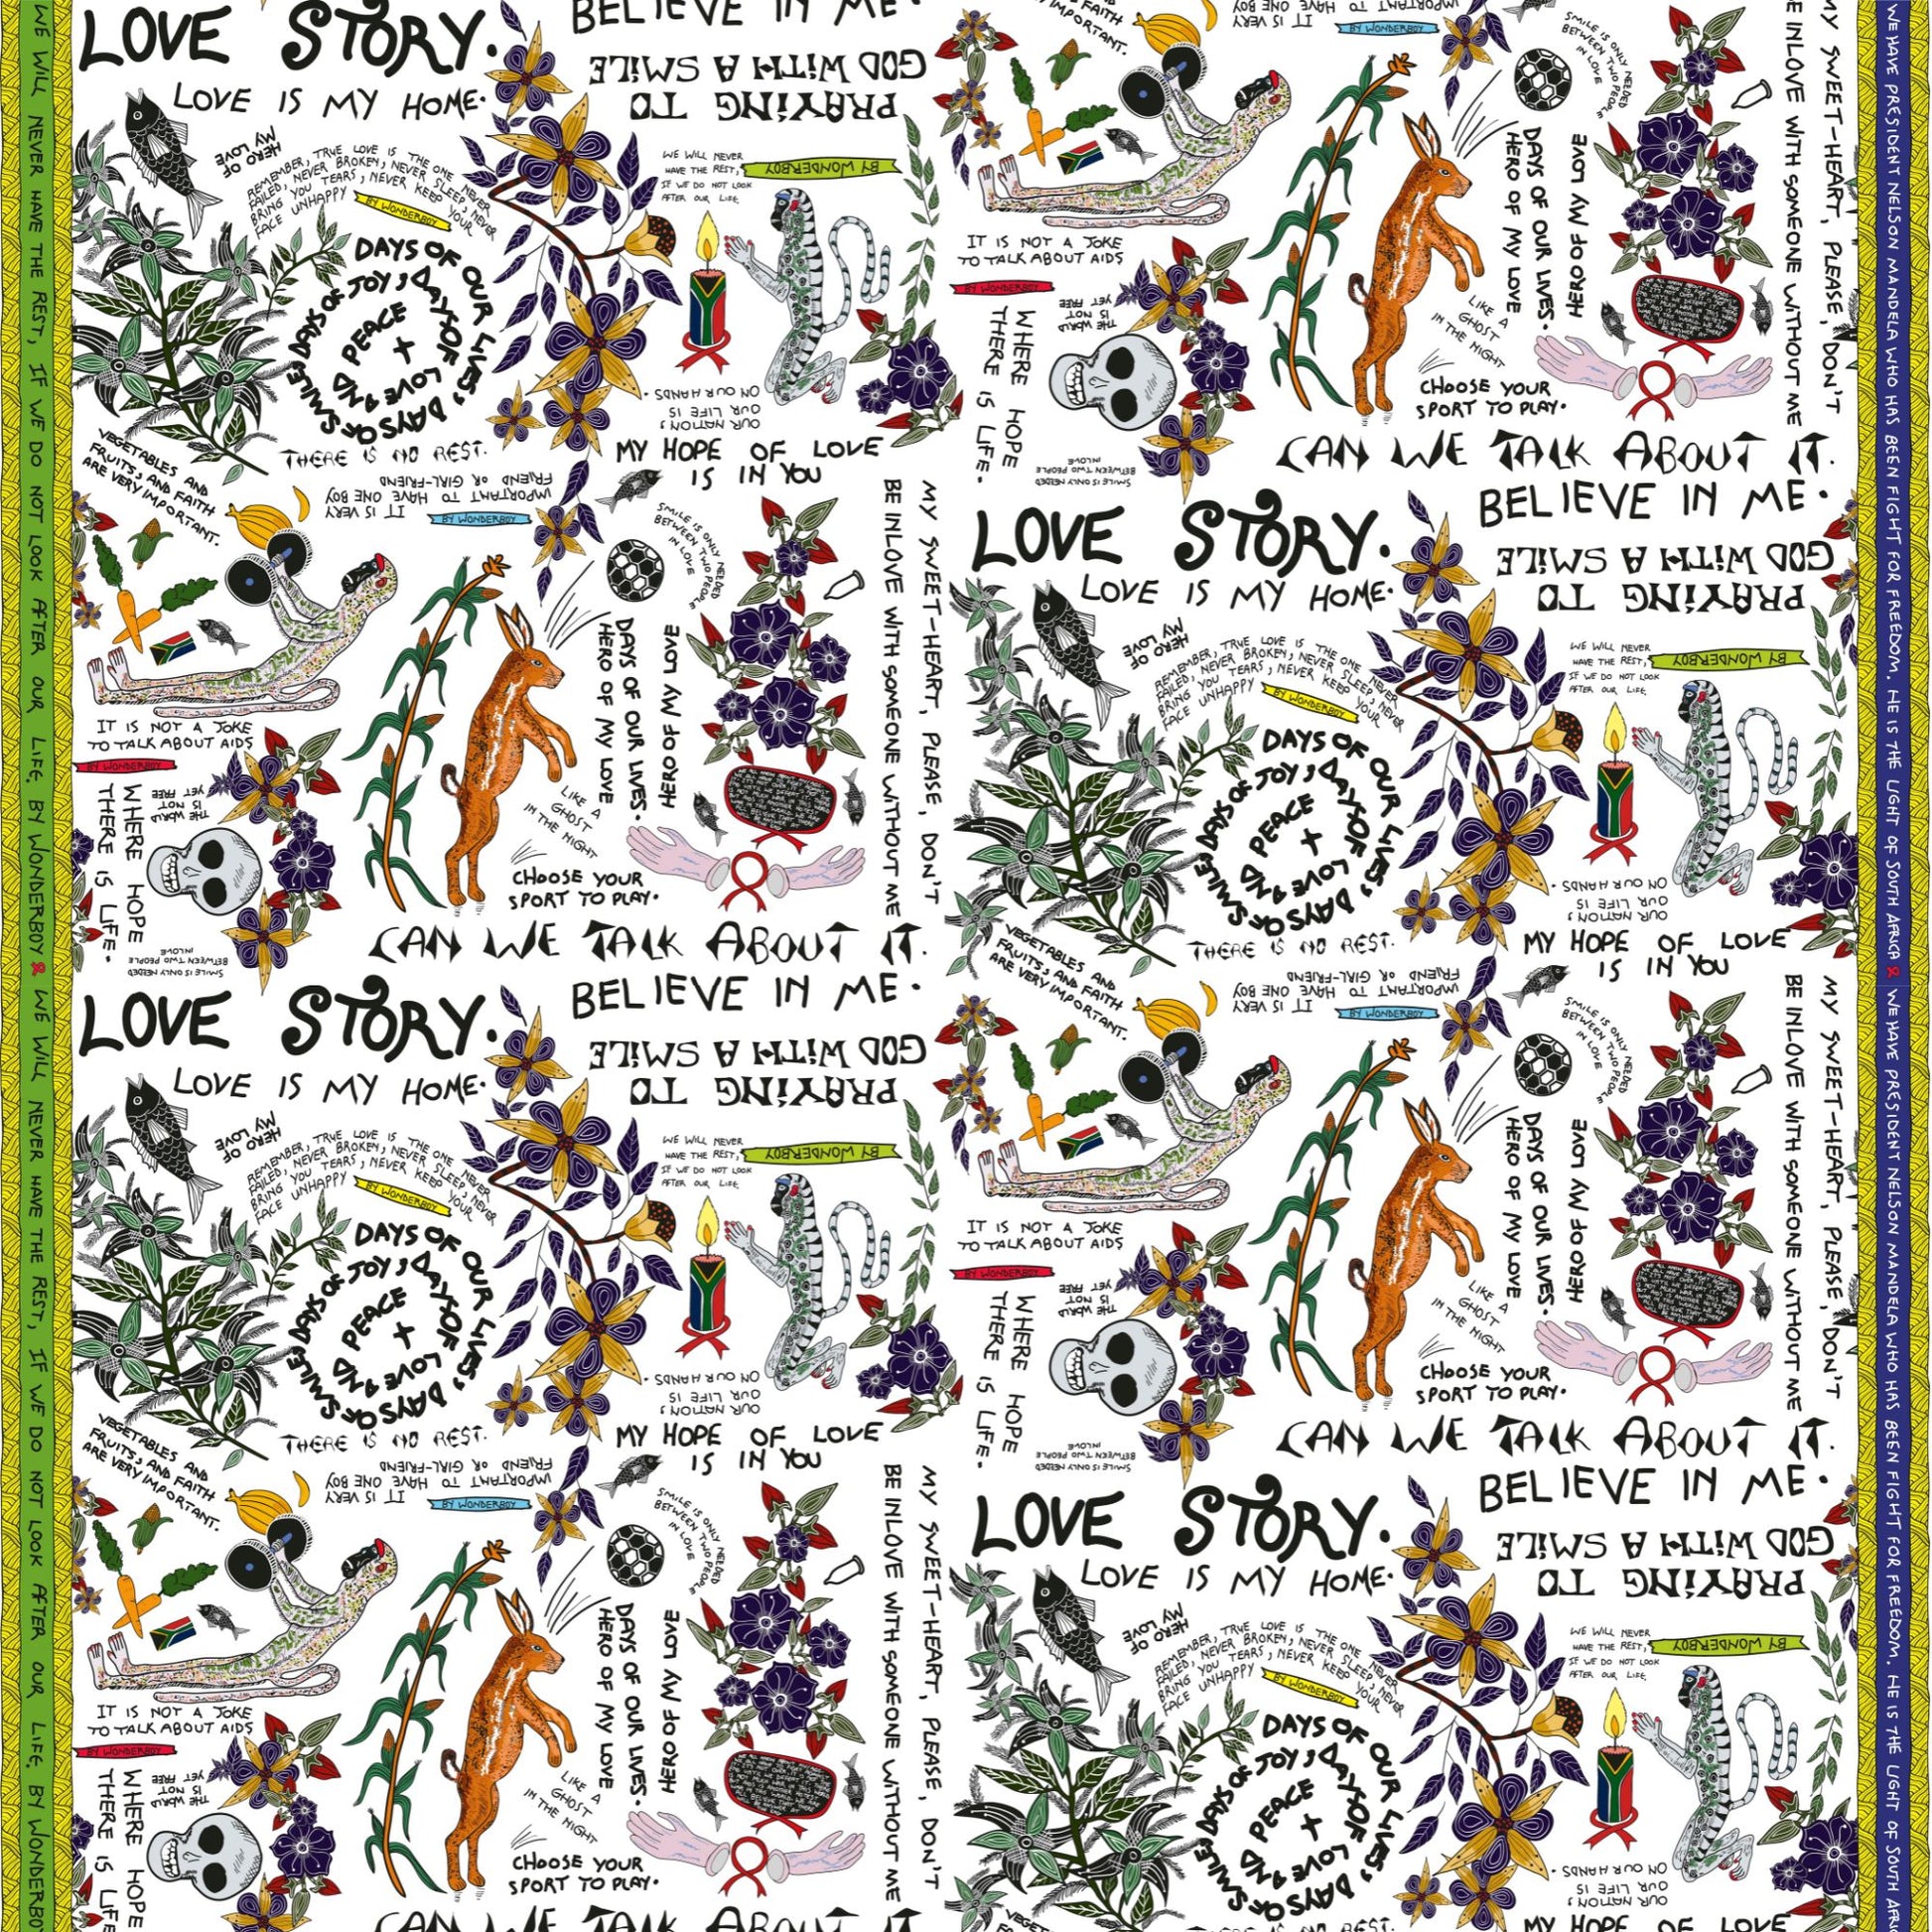 WE WILL NEVER HAVE THE REST, IF WE DO NOT LOOK AFTER OUR LIFE. BY WONDERBOY
WE WILL NEVER HAVE THE REST, IF WE DO NOT LOOK AFTER OUR LIFE. BY WONDERBOY
LOVE STORY.
LOVE IS MY HOME.
BELIEVE IN ME.
PRAYING TO
GOD WITH A SMILE
HERO OF
MY LOVE
REMEMBER, TRUE LOVE IS THE ONE NEVER
FAILED, NEVER BROKEN, NEVER SLEEP, NEVER
BRING YOU TEARS, NEVER KEEP YOUR
FACE UNHAPPY
BY WONDERBOY
WE WILL NEVER
HAVE THE REST,
IF WE DO NOT LOOK
AFTER OUR LIFE.
BY WONDERBOY
DAYS OF OUR LIVES, DAYS OF SMILE, DAYS OF JOY, DAYS OF LOVE AND PEACE
THERE IS NO REST.
OUR NATION'S
OUR LIFE IS
ON OUR HANDS.
MY HOPE OF LOVE
IS IN YOU
VEGETABLES AND
FRUITS, AND FAITH
ARE VERY IMPORTANT.
IT IS VERY
IMPORTANT TO HAVE ONE BOY
FRIEND OR GIRL-FRIEND
BY WONDERBOY
SMILE IS ONLY NEEDED
BETWEEN TWO PEOPLE
IN LOVE
MY SWEET-HEART, PLEASE, DON'T
BE INLOVE WITH SOMEONE WITHOUT ME
DAYS OF OUR LIVES.
HERO OF MY LOVE
HERO OF MY LOVE
IT IS NOT A JOKE
TO TALK ABOUT AIDS
BY WONDERBOY
THE WORLD
IS NOT
YET FREE
WHERE HOPE
THERE IS LIFE.
SMILE IS ONLY NEEDED
BETWEEN TWO PEOPLE
INLOVE
LIKE A
GHOST
IN THE NIGHT
CHOOSE YOUR
SPORT TO PLAY.
CAN WE TALK ABOUT IT.
WE HAVE PRESIDENT NELSON MANDELA WHO HAS BEEN FIGHT FOR FREEDOM. HE IS THE LIGHT OF SOUTH AFRICA
WE HAVE PRESIDENT NELSON MANDELA WHO HAS BEEN FIGHT FOR FREEDOM. HE IS THE LIGHT OF SOUTH AFRICA